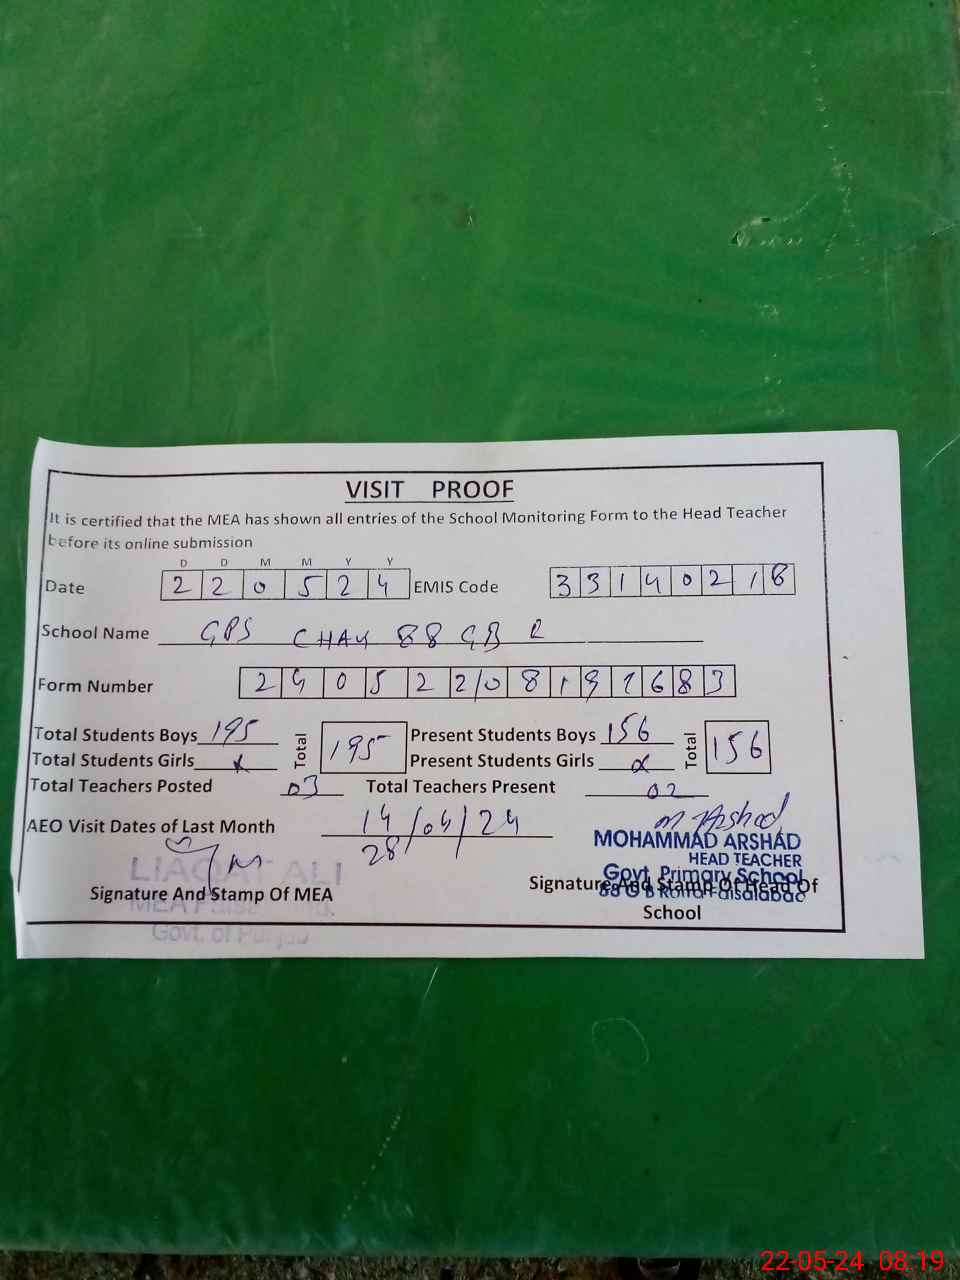 VISIT PROOF
It is certified that the MEA has shown all entries of the School Monitoring Form to the Head Teacher
before its online submission
D D M M Y Y
Date 2 2 0 5 2 4 EMIS Code 3 3 1 4 0 2 1 8
School Name GPS CHAK 88 GB R
Form Number 2 4 0 5 2 2 0 8 1 9 1 6 8 3
Total Students Boys 195 Total 195 Present Students Boys 156 Total 156
Total Students Girls x Present Students Girls x
Total Teachers Posted 03 Total Teachers Present 02
AEO Visit Dates of Last Month 14/04/24
28
M Arshad
MOHAMMAD ARSHAD
HEAD TEACHER
Govt. Primary School
88 G B Faisalabad
LIAQAT ALI
MEA
Govt. of Punjab
Signature And Stamp Of MEA
Signature And Stamp Of Head Of
School
22-05-24 08:19